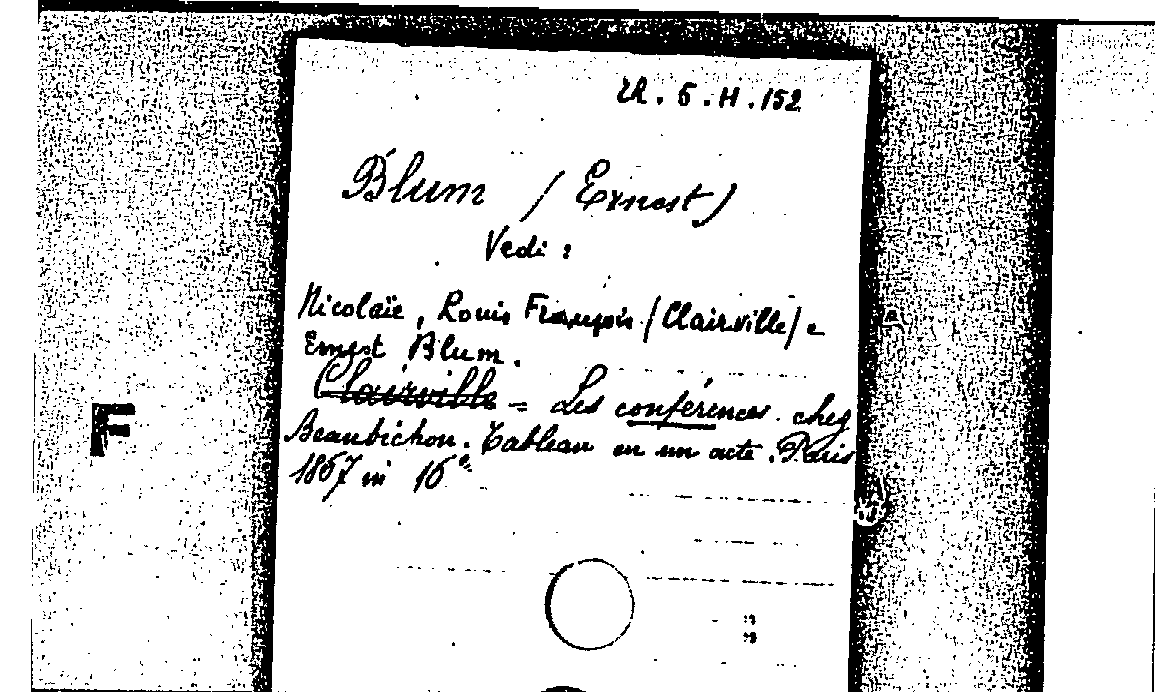 R. 6. H. 152
Blum (Ernest)
Vedi:
Nicolaïe, Louis François (Clairville) e
Ernest Blum.
Clairville = Les conférences chez
Beaubichon. Tableau en un acte. Paris
1867 in 16°
F